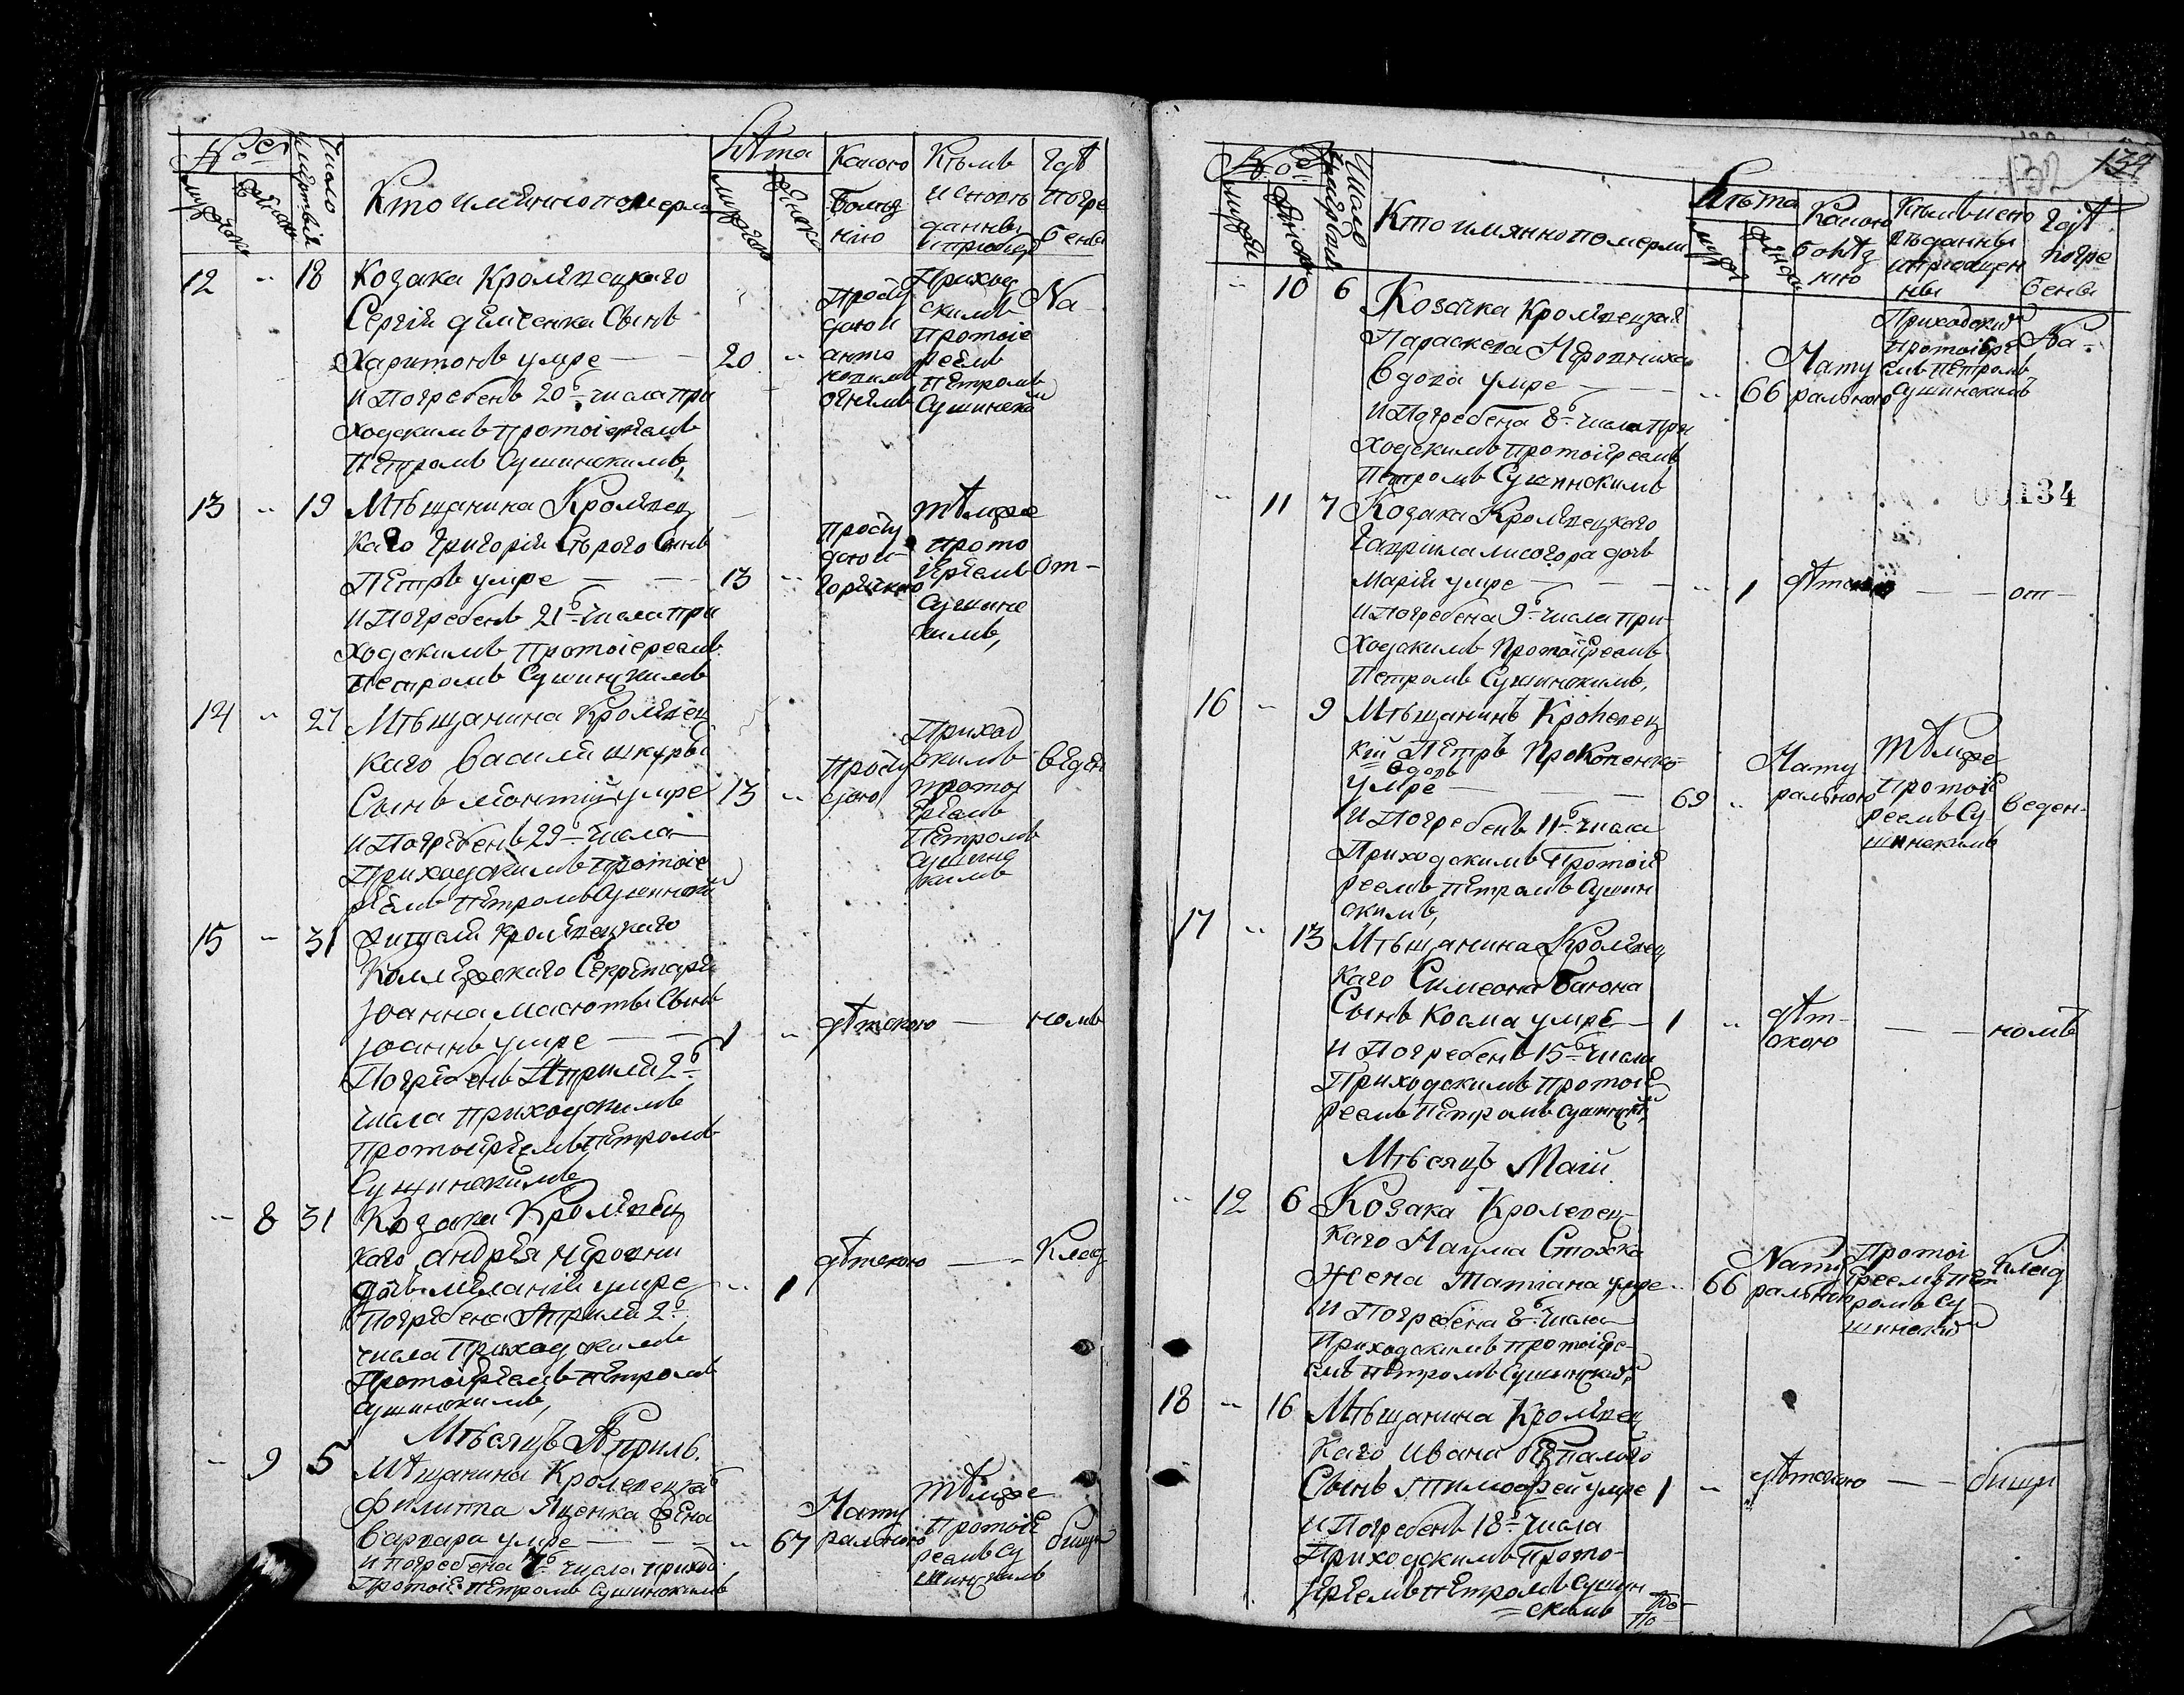 №
Число
Кто имянно померли
Лѣта
Какою
Кѣмъ
Гдѣ
погре
бены
12 " 18 Козака Кролевецкаго
Сергія Демченка Сынъ
Харитонъ умре — 20 "
и Погребенъ 20го числа при
ходскимъ протоіереемъ
Петромъ Сушинскимъ,
Просту
дою и
анто
новимъ
огнемъ
Приход
скимъ
протоіе
реемъ
Петромъ
Сушински
На
13 " 19 Мѣщанина Кролевец
каго Григорія Сѣрого Сынъ
Петръ умре — 13 "
и Погребенъ 21го числа при
ходскимъ протоіереемъ
Петромъ Сушинскимъ
Просту
дою и
горячкою
Тѣмже
прото
іереемъ
Сушинс
кимъ,
от-
14 " 27 Мѣщанина Кролевец
каго Василія Шкуры
Сынъ Леонтій умре 13 "
и Погребенъ 29го числа
Приходскимъ протоіе
реемъ Петромъ Сушински
Просту
дою
Приход
скимъ
протоі
ереемъ
Петромъ
Сушинс
кимъ
веден
15 " 31 Кролевецкаго
Коллежскаго Секретаря
Іоанна Масюты Сынъ
Іоаннъ умре — 1 " дѣтскою — номъ
Погребенъ Апрѣля 2го
числа приходскимъ
протоіереемъ Петромъ
Сушинскимъ
" 8 31 Козака Кролевец
каго Андрея
дочь Меланія умре " 1 дѣтскою — Клад
Погребена Апрѣля 2го
числа Приходскимъ
Протоіереемъ Петромъ
Сушинскимъ,
Мѣсяцъ Априль.
" 9 5 Мѣщанина Кролевецкаго
Филиппа Яценка жена
Варвара умре — " 67
и погребена 7го числа приход
Протоіе Петромъ Сушинскимъ
Нату
ральною
Тѣмже
протоіе
реемъ Су
шинскимъ
бищи
132 134
№
Число
Кто имянно померли
Лѣта
Какою
болѣз
нію
Гдѣ
погре
бены
" 10 6 Козачка Кролевецкая
Параскева
вдова умре — " 66
и Погребена 8го числа при
ходскимъ протоіереемъ
Петромъ Сушинскимъ
Нату
ральною
Приходскимъ
протоіере
емъ Петромъ
Сушинскимъ
На-
00134
" 11 7 Козака Кролевецкаго
Гавріила Лисогора дочь
Марія умре — " 1 дѣтскою — — от-
и Погребена 9го числа при-
ходскимъ Протоіереемъ
Петромъ Сушинскимъ,
16 " 9 Мѣщанинъ Кролевец
кій Петръ Прокопенко
вдовъ
умре — 69 "
и Погребенъ 11го числа
Приходскимъ Протоіе
реемъ Петромъ Сушин
скимъ,
Нату
ральною
Тѣмже
протоіе
реемъ Су
шинскимъ
веден-
17 " 13 Мѣщанина Кролевец
каго Симеона
Сынъ Косма умре — 1 " дѣт-
скою — — номъ
и Погребенъ 15го числа
Приходскимъ протоіе
реемъ Петромъ Сушински,
Мѣсяцъ Маій
" 12 6 Козака Кролевец-
каго Наума Стожка
Жена Татіана умре " 66
и Погребена 8го числа
Приходскимъ протоіере-
емъ Петромъ Сушински,
Нату
ральною
Протоі
ереемъ Пет
ромъ Су
шински
Клад
18 " 16 Мѣщанина Кролевец
каго Ивана
Сынъ Тимофей умре 1 " дѣтскою — — бищи
и Погребенъ 18го числа
Приходскимъ Прото-
іереемъ Петромъ Сушин
скимъ